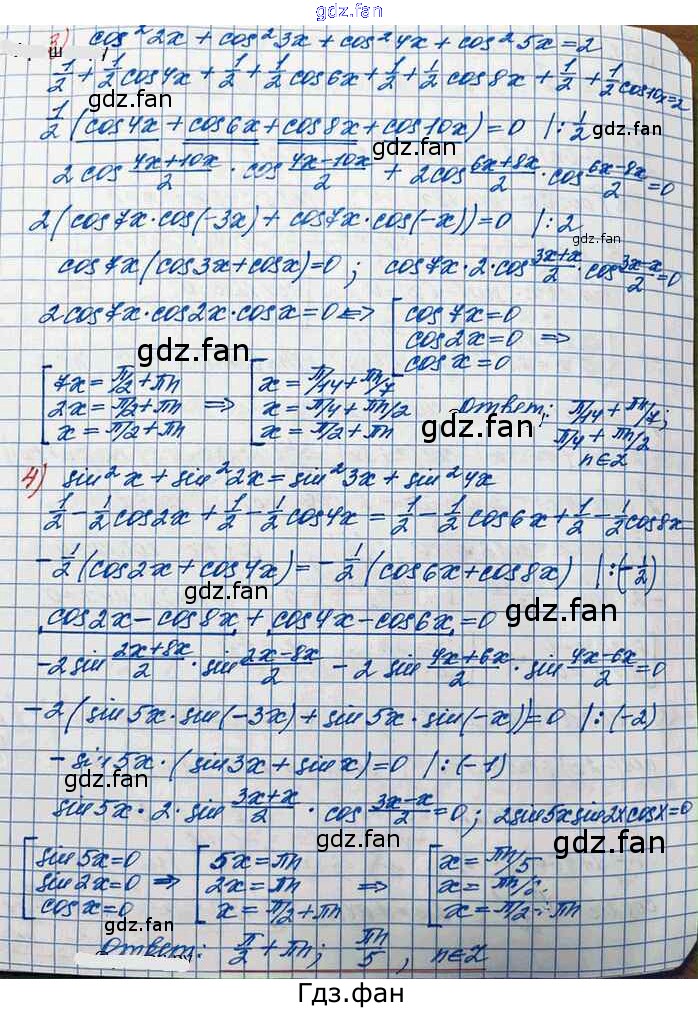 gdz.fan
3) cos²2x + cos²3x + cos²4x + cos²5x = 2
1/2 + 1/2 cos4x + 1/2 + 1/2 cos6x + 1/2 + 1/2 cos8x + 1/2 + 1/2 cos10x = 2
gdz.fan
1/2 (cos4x + cos6x + cos8x + cos10x) = 0 |: 1/2
gdz.fan
2cos (4x+10x)/2 · cos (4x-10x)/2 + 2cos (6x+8x)/2 · cos (6x-8x)/2 = 0
2(cos7x·cos(-3x) + cos7x·cos(-x)) = 0 |: 2
gdz.fan
cos7x(cos3x + cosx) = 0; cos7x·2·cos (3x+x)/2 · cos (3x-x)/2 = 0
2cos7x·cos2x·cosx = 0 <=> [ cos7x = 0
cos2x = 0 =>
cosx = 0
gdz.fan
gdz.fan
[ 7x = π/2 + πn => [ x = π/14 + πn/7 Ответ: π/14 + πn/7;
2x = π/2 + πn x = π/4 + πn/2 π/4 + πn/2
x = π/2 + πn x = π/2 + πn n∈Z
gdz.fan
4) sin²x + sin²2x = sin²3x + sin²4x
1/2 - 1/2 cos2x + 1/2 - 1/2 cos4x = 1/2 - 1/2 cos6x + 1/2 - 1/2 cos8x
gdz.fan
-1/2 (cos2x + cos4x) = -1/2 (cos6x + cos8x) |: (-1/2)
cos2x - cos8x + cos4x - cos6x = 0
gdz.fan
-2sin (2x+8x)/2 · sin (2x-8x)/2 - 2 sin (4x+6x)/2 · sin (4x-6x)/2 = 0
gdz.fan
-2(sin5x·sin(-3x) + sin5x·sin(-x)) = 0 |: (-2)
-sin5x·(sin3x + sinx) = 0 |: (-1)
gdz.fan
sin5x·2·sin (3x+x)/2 · cos (3x-x)/2 = 0; 2sin5xsin2xcosx = 0
gdz.fan
gdz.fan
[ sin5x = 0 [ 5x = πn [ x = πn/5
sin2x = 0 => 2x = πn => x = πn/2
cosx = 0 x = π/2 + πn x = π/2 + πn
Ответ: π/2 + πn; πn/5, n∈Z
Гдз.фан